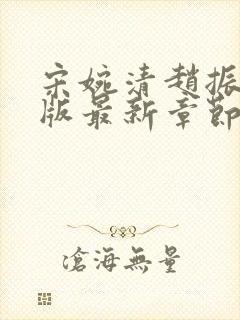 宋婉清趙振
版最新章節
滄海無量